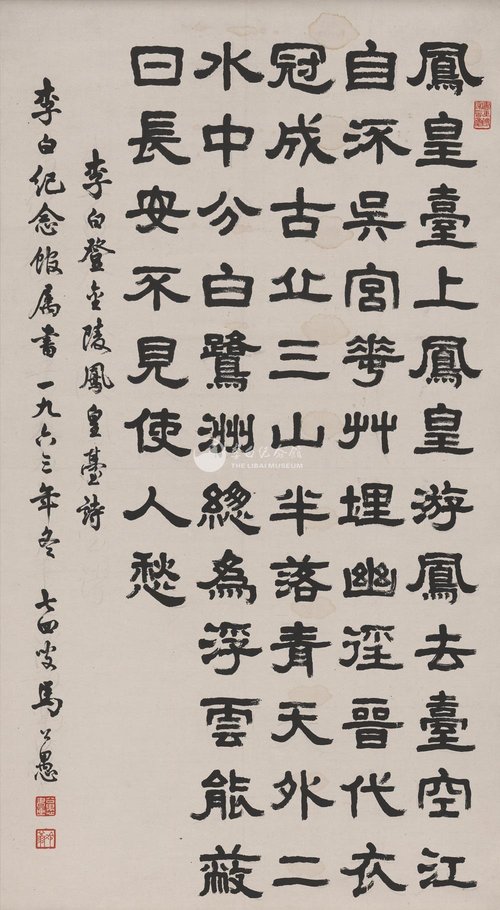 鳳皇臺上鳳皇游鳳去臺空江
自流吳宮華艸埋幽徑晉代衣
冠成古丘三山半落青天外二
水中分白鷺洲緫為浮雲能蔽
日長安不見使人愁
李白登金陵鳳皇臺詩
李白紀念館属書 一九六三年冬 七四叟馬公愚
李白纪念馆
THE LIBAI MUSEUM